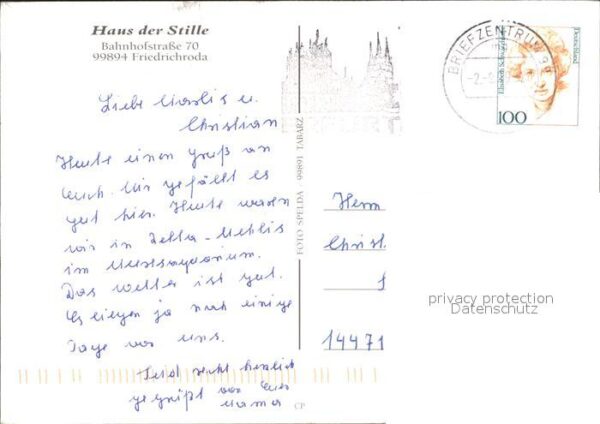 Haus der Stille
Bahnhofstraße 70
99894 Friedrichroda
Liebe Marlis u.
Christian
Heute einen Gruß an
Euch. Mir gefällt es
gut hier. Heute waren
wir in Zella-Mehlis
im Meeresaquarium.
Das Wetter ist gut.
Es liegen ja noch einige
Tage vor uns.
Seid recht herzlich
gegrüßt von Eurer
Mama
CP
FOTO SPELDA 99891 TABARZ
BRIEFZENTRUM 99
Deutschland
100
Herrn
Christ
14471
privacy protection
Datenschutz